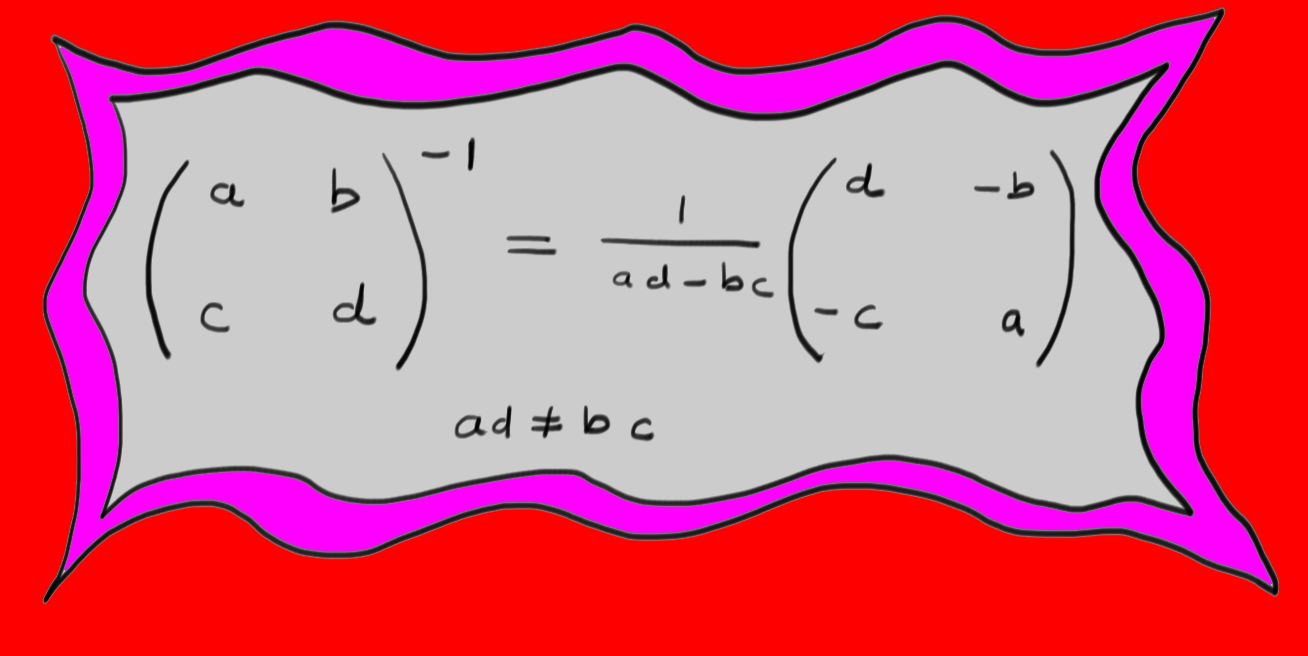 $\begin{pmatrix} a & b \\ c & d \end{pmatrix}^{-1} = \frac{1}{ad-bc} \begin{pmatrix} d & -b \\ -c & a \end{pmatrix}$
ad ≠ bc